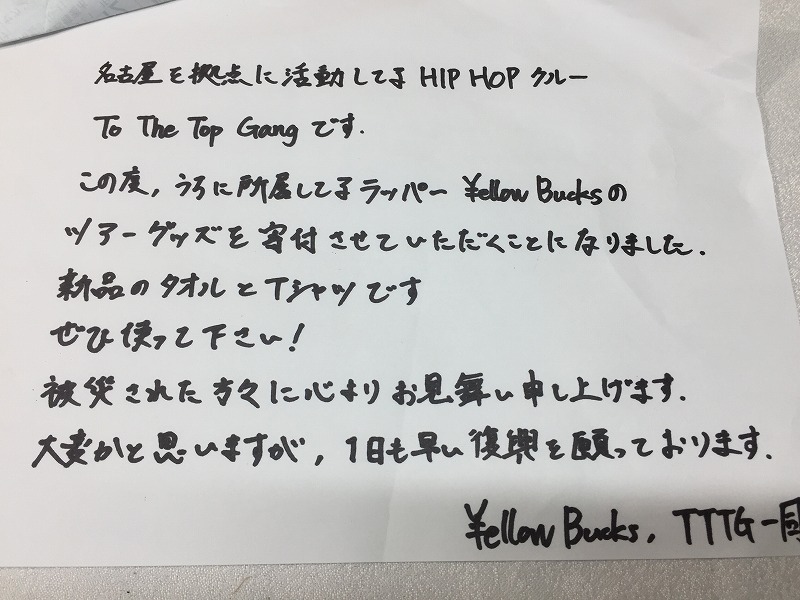 名古屋を拠点に活動してる HIP HOP クルー
To The Top Gang です.
この度, うちに所属してるラッパー ¥ellow Bucksの
ツアーグッズを寄付させていただくことになりました.
新品のタオルとTシャツです
ぜひ使って下さい!
被災された方々に心よりお見舞い申し上げます.
大変かと思いますが, 1日も早い復興を願っております.
¥ellow Bucks, TTTG一同